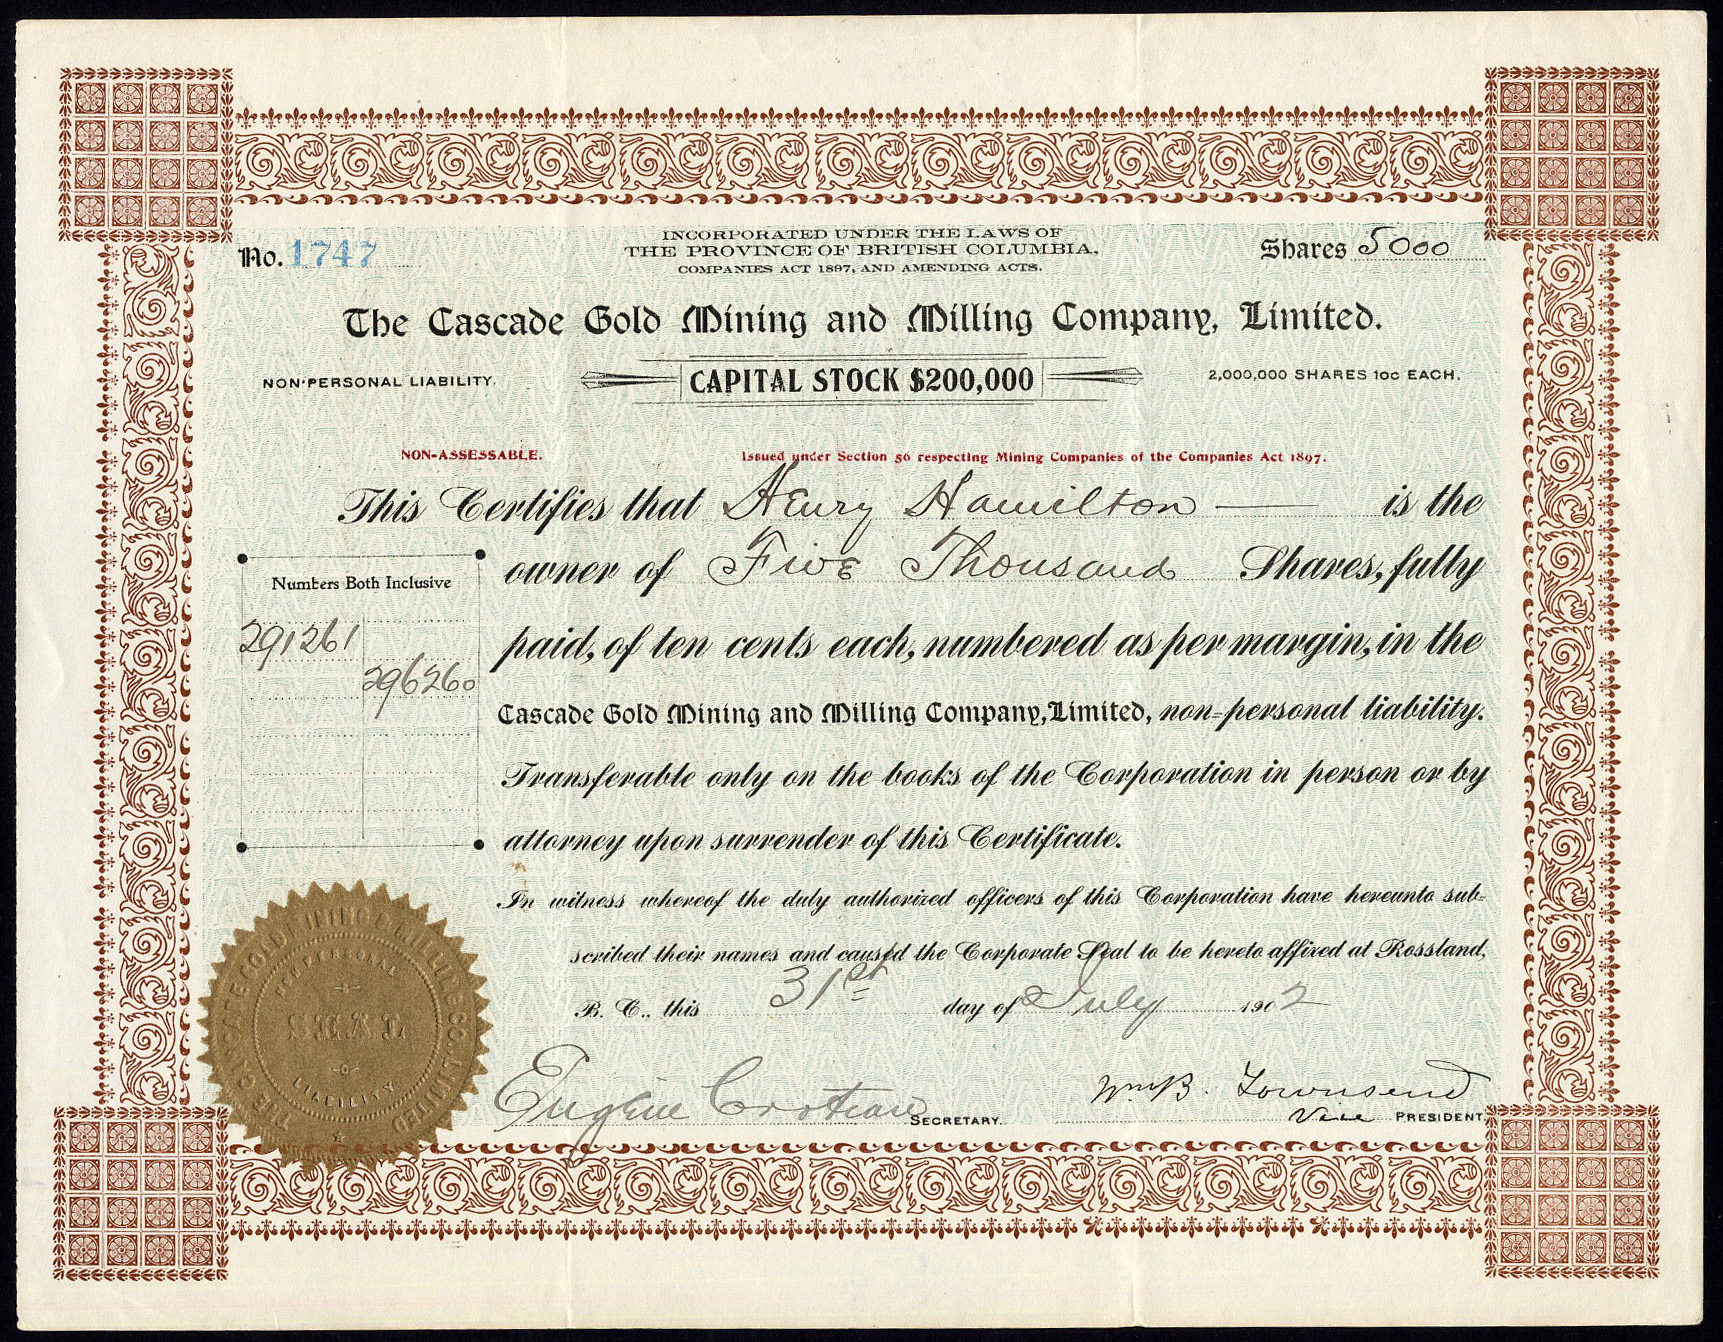 INCORPORATED UNDER THE LAWS OF
THE PROVINCE OF BRITISH COLUMBIA,
COMPANIES ACT 1897, AND AMENDING ACTS.
No. 1747
Shares 5000
The Cascade Gold Mining and Milling Company, Limited.
NON-PERSONAL LIABILITY.
CAPITAL STOCK $200,000
2,000,000 SHARES 10c EACH.
NON-ASSESSABLE.
Issued under Section 56 respecting Mining Companies of the Companies Act 1897.
This Certifies that Henry Hamilton is the
owner of Five Thousand Shares, fully
paid, of ten cents each, numbered as per margin, in the
Cascade Gold Mining and Milling Company, Limited, non-personal liability.
Transferable only on the books of the Corporation in person or by
attorney upon surrender of this Certificate.
Numbers Both Inclusive
291261
296260
In witness whereof the duly authorized officers of this Corporation have hereunto sub-
scribed their names and caused the Corporate Seal to be hereto affixed at Rossland,
B. C., this 31st day of July 1902
Eugene SECRETARY.
Wm B. Townsend
Vice PRESIDENT
THE CASCADE GOLD MINING & MILLING CO. LIMITED
NON PERSONAL
SEAL
LIABILITY